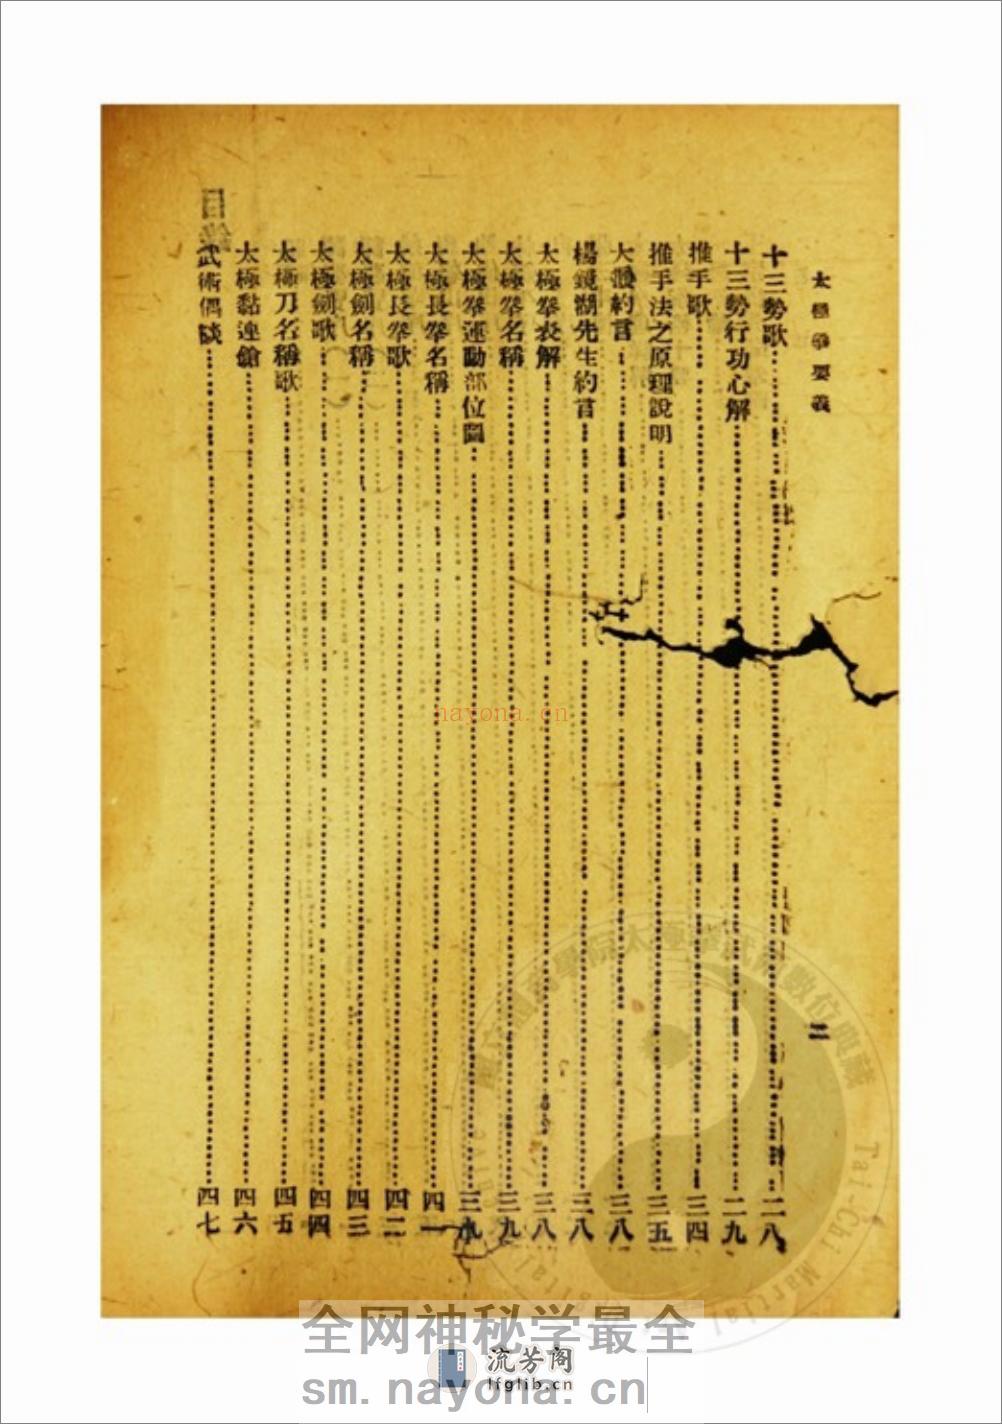 太極拳要義
二
十三勢歌 二八
十三勢行功心解 二九
推手歌 三四
推手法之原理說明 三五
大㨰約言 三八
楊鏡湖先生約言 三八
太極拳表解 三八
太極拳名稱 三九
太極拳運動部位圖 三九
太極長拳名稱 四一
太極長拳歌 四二
太極劍名稱 四三
太極劍歌 四四
太極刀名稱歌 四五
太極黏連鎗 四六
武術偶談 四七
nayona.cn
Tai-Chi Martial
全网神秘学最全
流芳阁
lfglib.cn
sm.nayona.cn